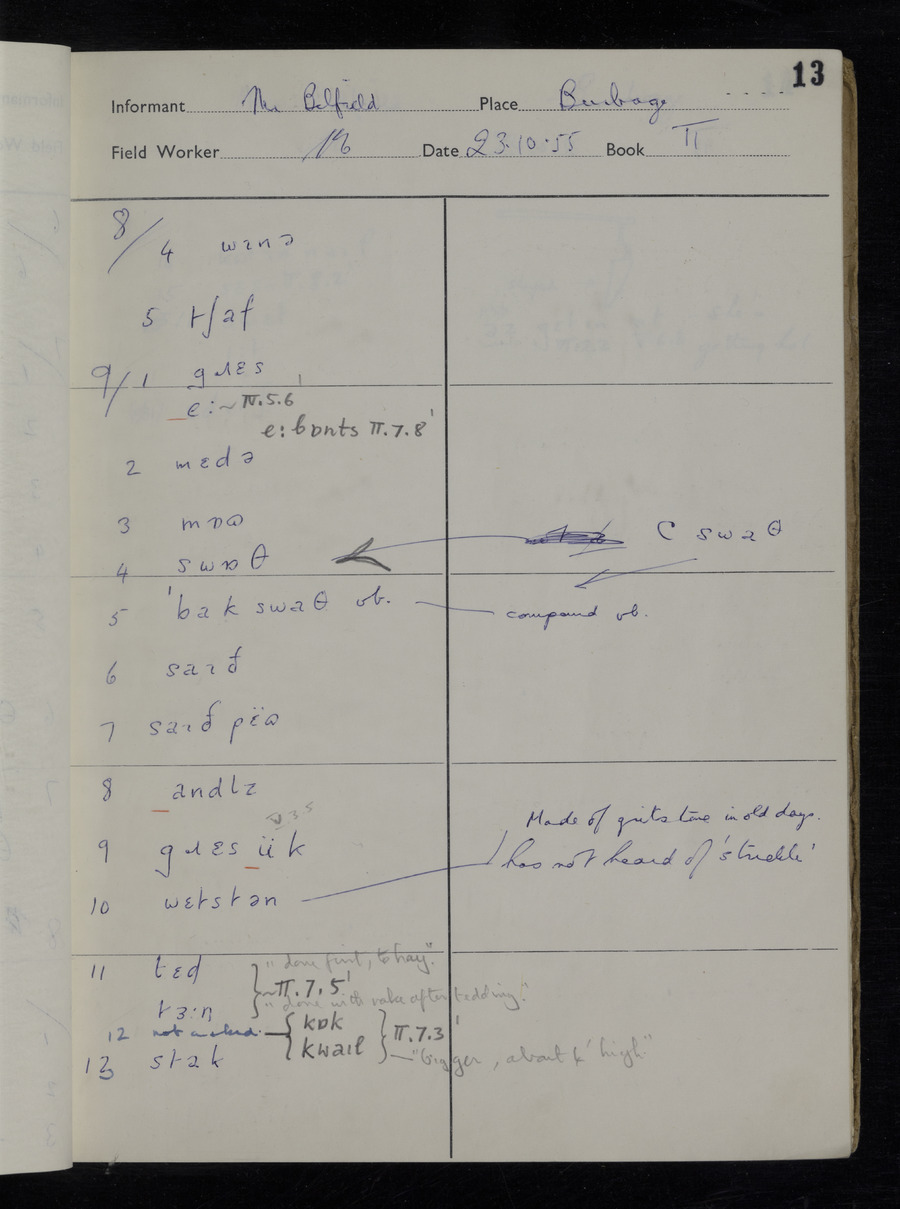 13
Informant Mr Belfield Place Burbage
Field Worker Date 23.10.55 Book II
8/4 wɪnə
5 tʃaf
9/1 gɹɛs
e:~ IV.5.6
e: bɒnts II.7.8
2 mɛdə
3 mɒɷ
4 swɒθ C swaθ
5 'bak swaθ vb. compound vb.
6 saɪð
7 saɪð pëɷ
8 andlɪ
V 3 5
Made of gritstone in old days.
9 gɹɛs ük
has not heard of 'strickle'
10 wɛtstən
11 tɛd "done first, to hay."
~II.7.5
tɜ:n "done with rake after tedding."
12 not asked. kɒk II.7.3
kwaɪl "bigger, about 6' high"
13 stak